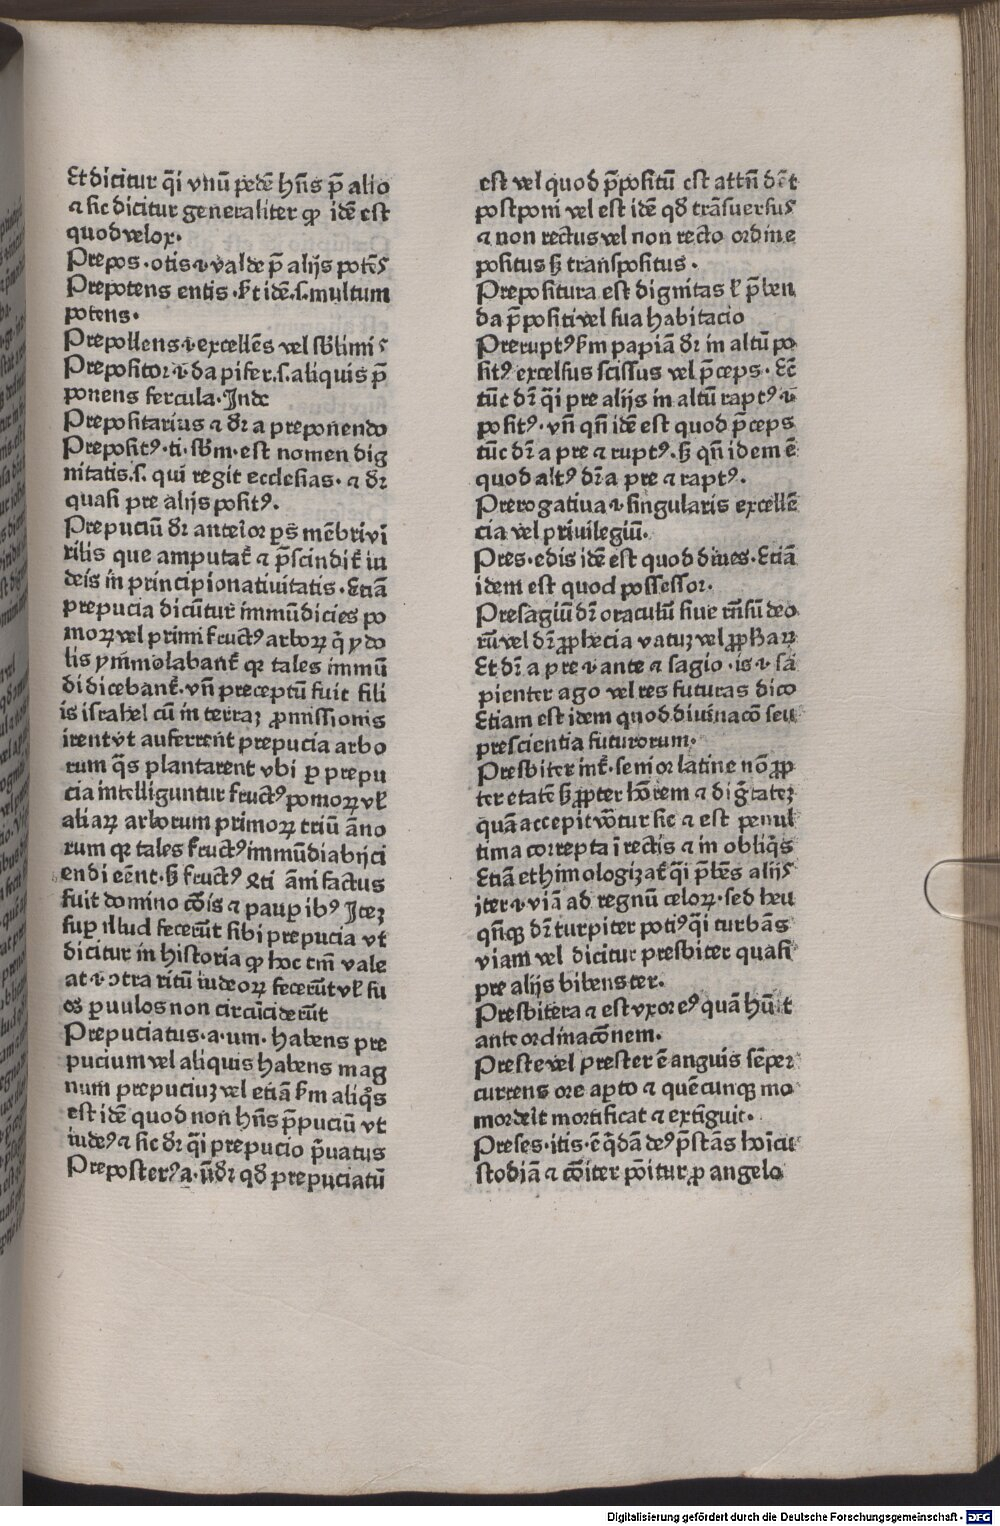 Et dicitur q̄i vnū pedē hn̄s p̄ alio
⁊ sic dicitur generaliter ꝙ idē est
quod velox.
Prepos·otis·i·valde p̄ alijs potēs
Prepotens entis·k̄t idē·s·multum
potens.
Prepollens·i·excellēs vel sb̄limis
Prepositor·i·dapifer·s·aliquis p̄
ponens fercula·Inde
Prepositarius ⁊ dr̄ a preponendo
Prepositꝰ·ti·sb̄m·est nomen dig
nitatis·s· qui regit ecclesias· ⁊ dr̄
quasi pre alijs positꝰ.
Prepuciū dr̄ anterior ps̄ mēbri vi
rilis que amputat᷑ ⁊ p̄scindit᷑ iu
deis in principio natiuitatis·Etiā
prepucia dicūtur immūdicies po
moꝝ vel primi fructꝰ arboꝝ q̄ ydo
lis ymmolabant᷑ qꝛ tales immū
di dicebant᷑·vn̄ preceptū fuit fili
is israhel cū in terraꝫ ꝓmissionis
irent vt auferrent prepucia arbo
rum q̄s plantarent vbi ꝑ prepu
cia intelliguntur fructꝰ pomoꝝ vl̓
aliaꝝ arborum primoꝝ triū āno
rum qꝛ tales fructꝰ immūdi abijci
endi eēnt·sꝫ fructꝰ q̄rti āni factus
fuit domino cōis ⁊ pauꝑibꝰ Iteꝫ
suꝑ illud fecerūt sibi prepucia vt
dicitur in historia ꝙ hoc tm̄ vale
at·i·ↄtra ritū iudeoꝝ fecerūt vl̓ su
os ꝑuulos non circūciderūt
Prepuciatus·a·um·habens pre
pucium vel aliquis habens mag
num prepuciuꝫ vel etiā k̄m aliq̄s
est idē quod non hn̄s p̄puciū vt
iudeꝰ ⁊ sic dr̄ q̄i prepucio p̄uatus
Preposterꝰ a·ū dr̄ qd̄ prepuciatū
est vel quod p̄positū est attn̄ debet
postponi vel est idē qd̄ trāsuersus
⁊ non rectus vel non recto ordine
positus sꝫ transpositus.
Prepositura est dignitas l̓ p̄ben
da p̄positi vel sua habitacio
Preruptꝰ k̄m papiā dr̄ in altū po
sitꝰ excelsus scissus vel p̄ceps·Et
tūc dr̄ q̄i pre alijs in altū raptꝰ·i·
positꝰ·vn̄ qn̄ idē est quod p̄ceps
tūc dr̄ a pre ⁊ ruptꝰ·sꝫ qn̄ idem ē
quod altꝰ dr̄ a pre ⁊ raptꝰ.
Prerogatiua·i·singularis excellē
cia vel priuilegiū.
Pres·edis idē est quod diues·Etiā
idem est quod possessor.
Presagiū dr̄ oraculū siue rn̄sū deo
rū vel dr̄ ꝓphecia vatuꝫ vel ꝓphaꝝ
Et dr̄ a pre·i·ante ⁊ sagio·is·i·sa
pienter ago vel res futuras dico
Etiam est idem quod diuinacō seu
prescientia futurorum.
Presbiter int᷑·senior latine nō ꝓp
ter etatē sꝫ ꝓpter ho̅rem ⁊ dig̅tateꝫ
quā accepit vo̅tur sic ⁊ est penul
tima correpta ī rectis ⁊ in obliq̄s
Etiā ethimologizat᷑ q̄i p̄bēs alijs
iter·i·viā ad regnū celoꝝ·sed heu
qn̄qꝫ dr̄ turpiter potiꝰ q̄i turbās
viam vel dicitur presbiter quasi
pre alijs bibens ter.
Presbitera ⁊ est vxor eꝰ quā hūit
ante ordinacōnem.
Preste vel prester ē anguis sēper
currens ore aꝑto ⁊ quēcunqꝫ mo
mordeit mortificat ⁊ extīguit.
Preses·itis·ē q̄dā deꝰ p̄stās hoi̅cu
stodiā ⁊ cōiter po̅itur ꝓ angelo
Digitalisierung gefördert durch die Deutsche Forschungsgemeinschaft - DFG